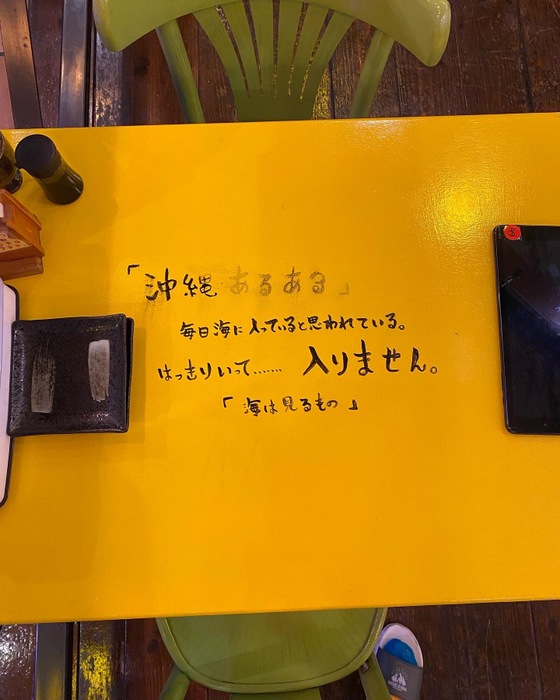 「沖縄あるある」
毎日海に入っていると思われている。
はっきりいって……入りません。
「海は見るもの」